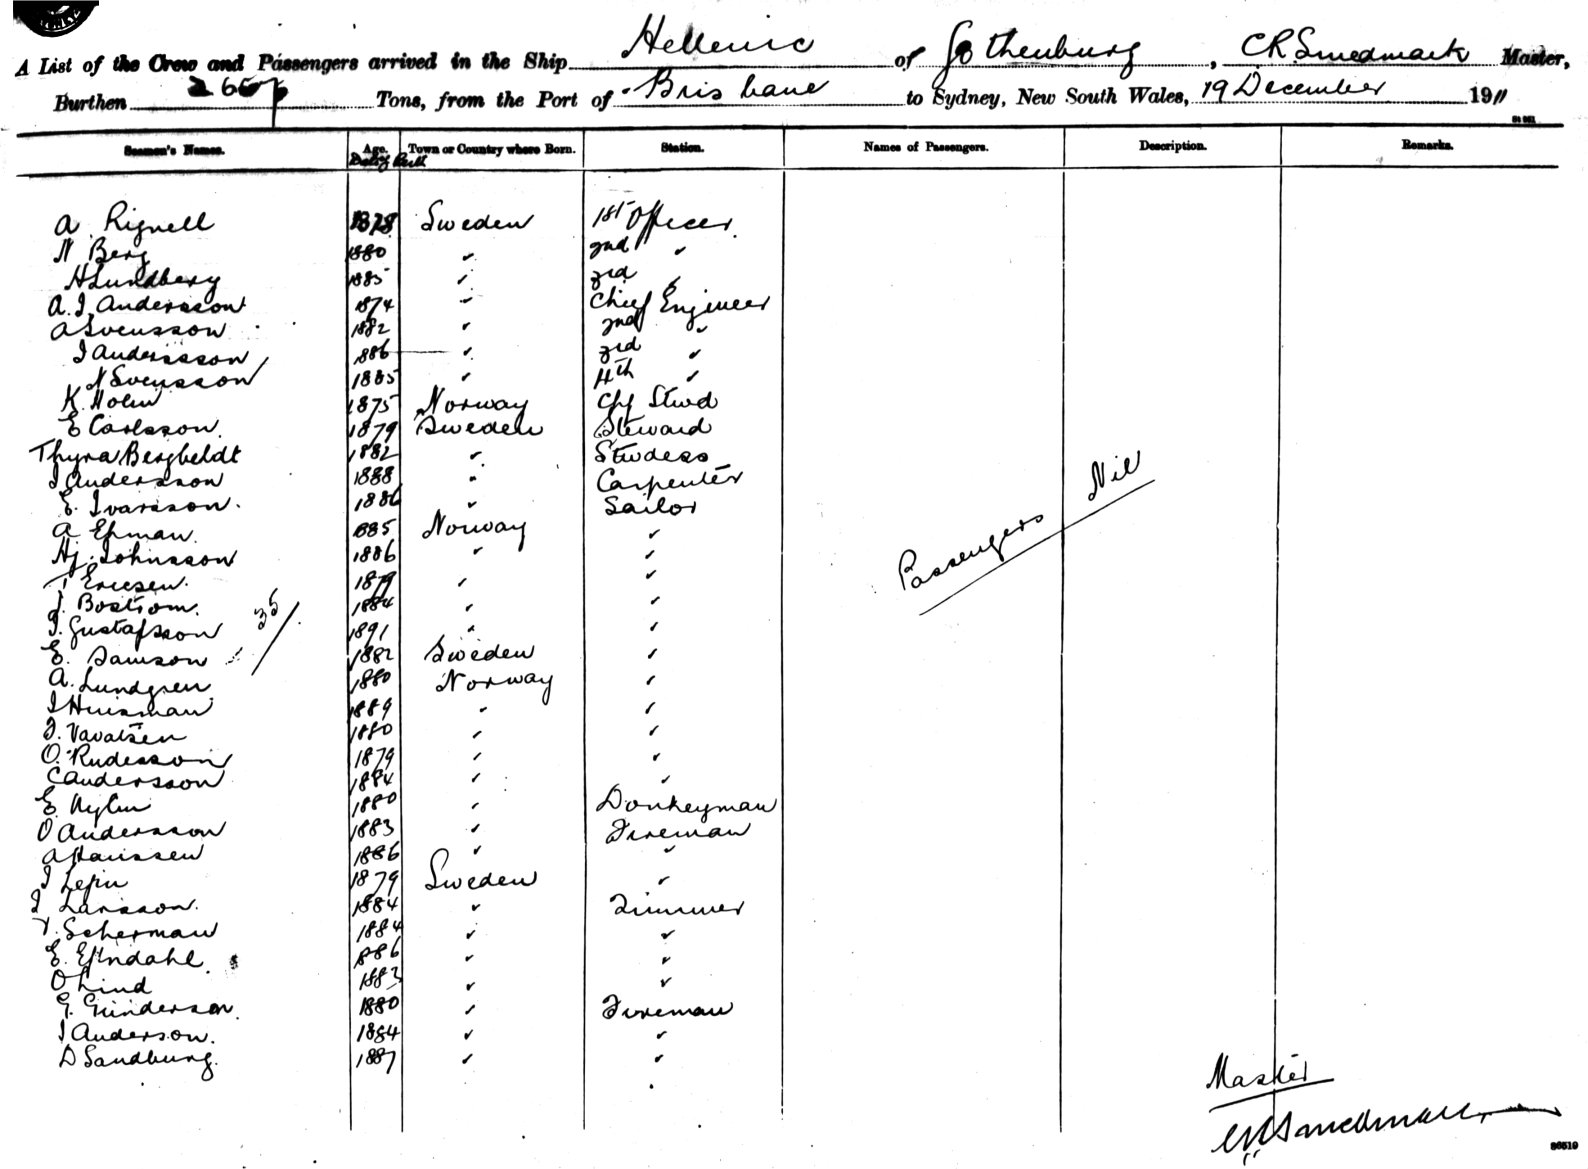 A List of the Crew and Passengers arrived in the Ship Hellenic of Gothenburg, C R Smedmark Master,
Burthen Tons, from the Port of Brisbane to Sydney, New South Wales, 19 December 1911
Seamen's Names. Age. Town or Country where Born. Station. Names of Passengers. Description. Remarks.
Date of Birth
A. Rignell 1878 Sweden 1st Officer
N Berg 1880 " 2nd "
H Lundberg 1885 " 3rd "
A. J. Andersson 1874 " Chief Engineer
A Svensson 1882 " 2nd "
J Anderssson 1886 " 3rd "
N Svensson 1885 " 4th "
K. Holm 1875 Norway Chf Stwd
E Carlsson. 1879 Sweden Steward
Thyra Bergheldt 1882 " Stwdess
J Andersson 1888 " Carpenter
E. Ivarsson. 1886 " Sailor
A Ehman. 1885 Norway "
Hj. Johnsson 1886 " "
T Ericsen. 1879 " "
J. Bostrom. 1884 " "
J. Gustafsson 1891 " "
35/
E. Samson 1882 Sweden "
A. Lundgren. 1880 Norway "
J Huisman 1889 " "
J. Vavatsen 1880 " "
O. Rudesson 1879 " "
C Andersson 1884 " "
E. Nylin 1880 " Donkeyman
O Andersson 1883 " Fireman
A Hanssen 1886 " "
J Lepin 1879 Sweden "
J Larsson. 1884 " Trimmer
T. Scherman 1884 " "
E. 1886 " "
O Lind 1883 " "
G. Gunderson. 1880 " Fireman
J Anderson. 1884 " "
D Sandburg. 1887 " "
Passengers Nil
Master
C R Smedmark